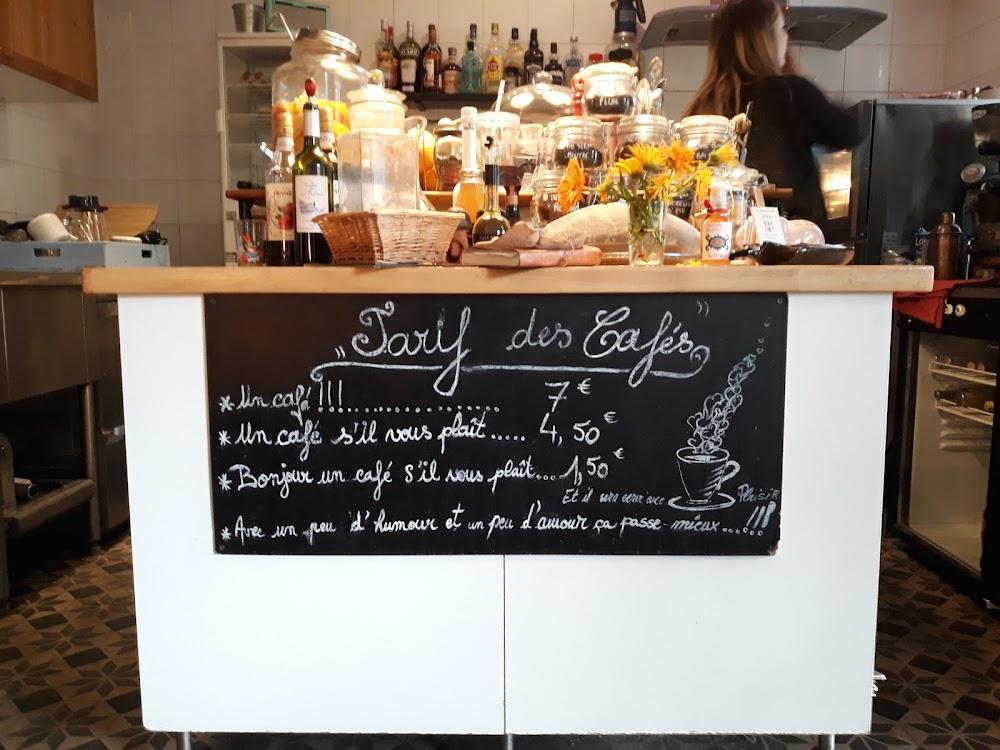 „ Tarif des Cafés "
* Un café !!!.................. 7 €
* Un café s'il vous plaît..... 4,50 €
* Bonjour un café s'il vous plaît.... 1,50 €
Et il sera servi avec Plaisir
* Avec un peu d'humour et un peu d'amour ça passe mieux......!!!